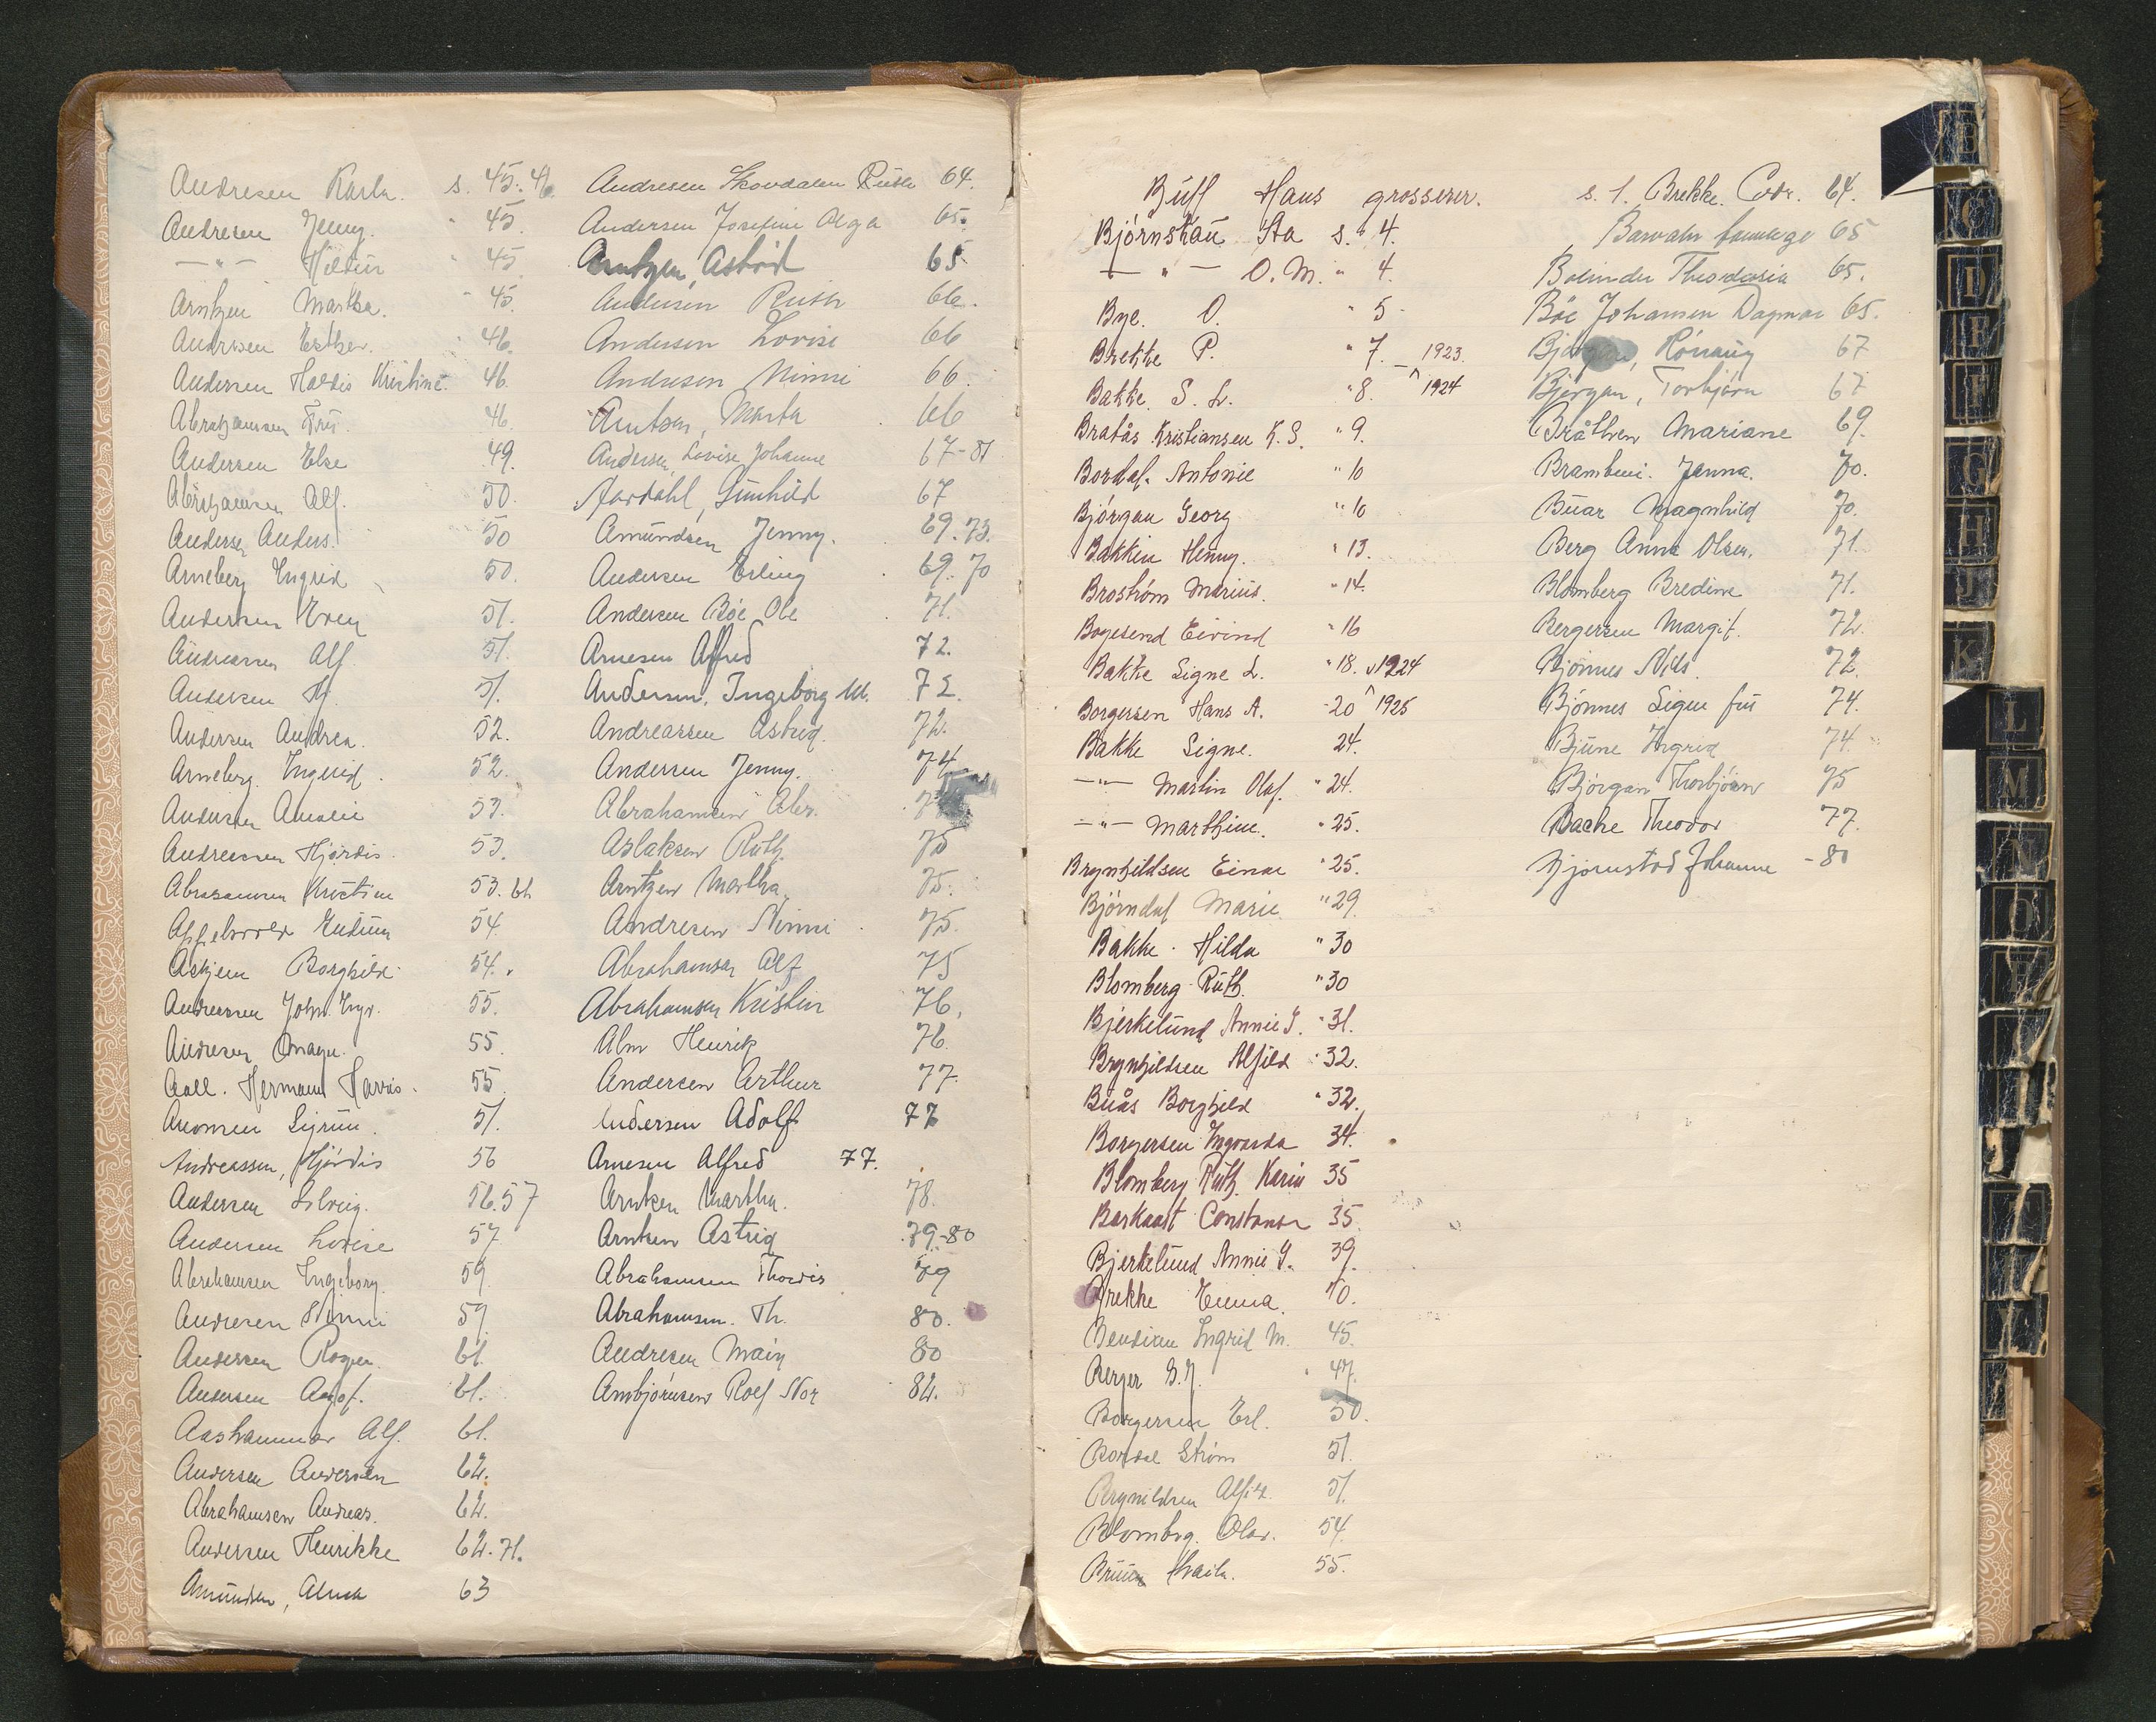 Andresen Karla. s. 45.46.
Andresen Jenny. " 45.
—"— Hildur " 45
Arntzen Martha. " 45.
Andresen Esther. 46.
Andersen Haldis Kristine. 46.
Abrahamsen Fru. 46.
Andersen Else 49.
Abrahamsen Alf. 50.
Andersen Anders. 50
Arneberg Ingrid 50.
Andersen Even 51.
Andreassen Alf. 51.
Andersen H. 51.
Andersen Andrea. 52.
Arneberg. Ingrid. 52.
Andersen Amalie 53.
Andreassen Hjørdis. 53.
Abrahamsen Kristine 53.61.
54.
Askjem Borghild 54.
Andreassen John. 55.
Andresen 55.
Aall. Hermann Harris. 55.
Sigrun. 51.
Andreassen, Hjørdis 56
Andersen Solveig. 56.57
Andersen Lovise 57
Abrahamsen Ingeborg. 59.
Andresen Mimi 59
Andersen Roger. 61.
Andersen Agot. 61.
Aashammer Alf. 61.
Andersen Andersen 62.
Abrahamsen Andreas. 62.
Andersen Henrikke 62.71.
Amundsen, 63
Andresen Skovdalen Ruth 64.
Andersen Josefine Olga 65.
Arntzen, Astrid 65
Andersen Ruth 66.
Andersen Lovise 66
Andresen Mimi 66.
Arntsen, Marta 66
Andersen, Lovise Johanne 67-81
Aardahl, Gunhild 67
Amundsen Jenny. 69.73.
Andersen Erling 69.70
Andersen Bøe Ole 71.
Arnesen Alfred 72.
Andersen, Ingeborg M. 72.
Andreassen Astrid. 72.
Andersen Jenny. 74
Abrahamsen Abr.
Aslaksen Ruth. 75
Arntzen Martha. 75.
Andresen Mimi 75.
Abrahamsen Alf 75
Abrahamsen Kristin 76.
Alm Henrik 76.
Andersen Arthur 77.
Andersen Adolf 77
Arnesen Alfred 77.
Arntsen Martha. 78.
Arntsen Astrid 39.-80
Abrahamsen Thordis 79
Abrahamsen. Th. 80.
Andresen Maiy 80
Ansbjørnsen Rolf Nor 82.
Buff Hans grosserer. s. 1.
Björnskau Sta s. 4.
—"— O. M. " 4.
Bye. O. " 5
Brekke P. " 7. 1923.
Bakke. S. L. " 8. 1924
Bratås Kristiansen K. S. " 9.
Bordal. Antonie " 10
Bjørgan Georg " 10
Bakkin Henny. " 13.
Broström Marius. " 14.
Bogesund Eivind " 16
Bakke Signe L. " 18. 1924
Borgersen Hans A. " 20 1925
Bakke Signe. 24.
—"— Martin Olaf. " 24.
—"— Marthine. " 25.
Brynhildsen Einar " 25.
Björndal Marie " 29.
Bakke. Hilda " 30
Blomberg Ruth. " 30
Bjerkelund Annie G. " 31.
Brynhildsen Alfild " 32.
Buås Borghild " 32.
Borgersen Ingvarda 34.
Blomberg Ruth. Karin 35
Barkaat Constanse 35.
Bjerkelund Annie G. 39.
Brekke Emma. 40.
Bendixen Ingrid M. 45.
Berger 47.
Borgersen Erl. 50.
Bordal Strøm 51.
Brynildsen Alfild 51.
Blomberg. Olav. 54.
Bruun 55.
Brekke. Odr. 64.
65
Bolinder Theodosia 65.
Bøe Johansen Dagmar 65.
Bjørgan, Rönnaug 67
Bjørgan, Torbjørn 67
Bråthen Mariane 69.
Brambani. Janna. 70.
Buar Magnhild 70.
Berg Anna Olsen. 71.
Blomberg Bredine 71.
Bergersen Margit. 72.
Bjönnes Nils. 72.
Bjönnes Signe fru 74.
Bjune Ingrid 74.
Bjørgan Thorbjörn 75
Backe Theodor 77.
Bjørnstad Johanne - 80
B
C
D
E
F
G
H
J
K
L
M
N
O
P